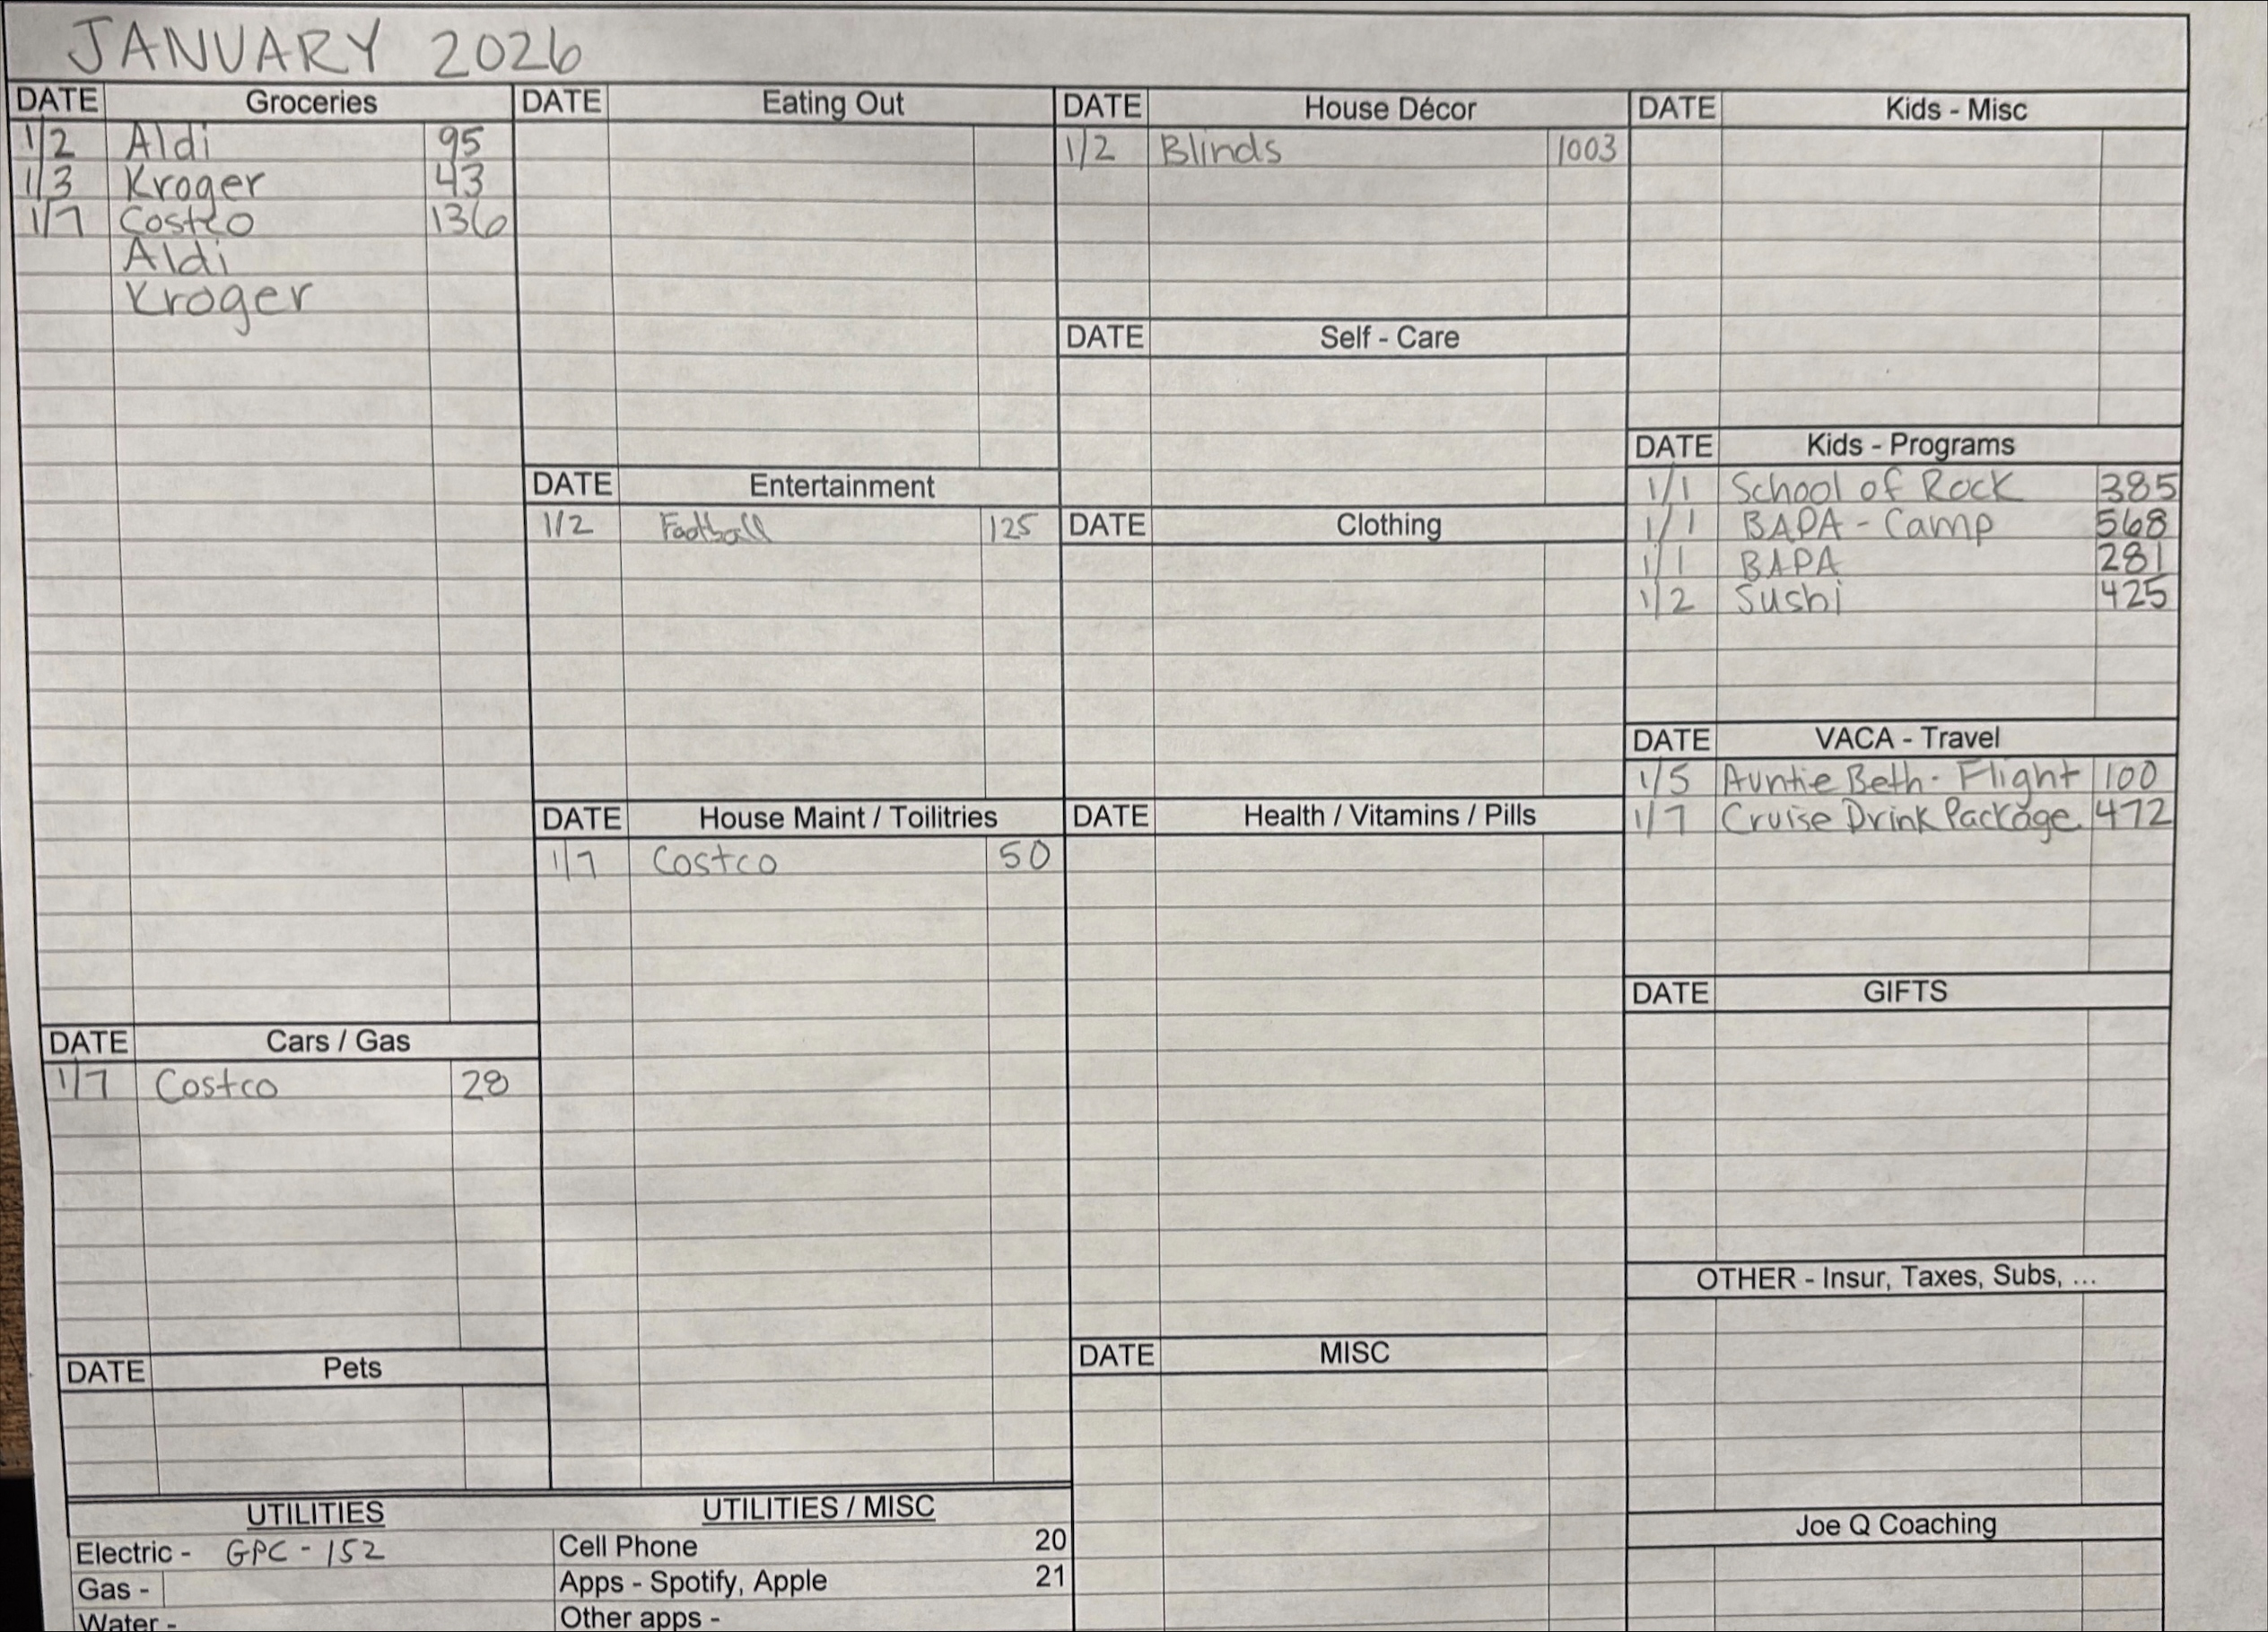 JANUARY 2026
DATE Groceries
1/2 Aldi 95
1/3 Kroger 43
1/7 Costco 136
Aldi
Kroger
DATE Cars / Gas
1/7 Costco 28
DATE Pets
DATE Eating Out
DATE Entertainment
1/2 Football 125
DATE House Maint / Toilitries
1/7 Costco 50
DATE House Décor
1/2 Blinds 1003
DATE Self - Care
DATE Clothing
DATE Health / Vitamins / Pills
DATE MISC
DATE Kids - Misc
DATE Kids - Programs
1/1 School of Rock 385
1/1 BAPA - Camp 568
1/1 BAPA 281
1/2 Sushi 425
DATE VACA - Travel
1/5 Auntie Beth - Flight 100
1/7 Cruise Drink Package 472
DATE GIFTS
OTHER - Insur, Taxes, Subs, ...
Joe Q Coaching
UTILITIES
Electric - GPC - 152
Gas -
Water -
UTILITIES / MISC
Cell Phone 20
Apps - Spotify, Apple 21
Other apps -